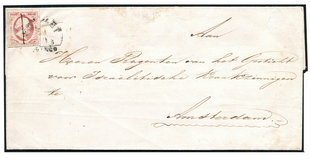 Aan
Heeren Regenten van het Gesticht
voor Israelitische Krankzinnigen
te
Amsterdam